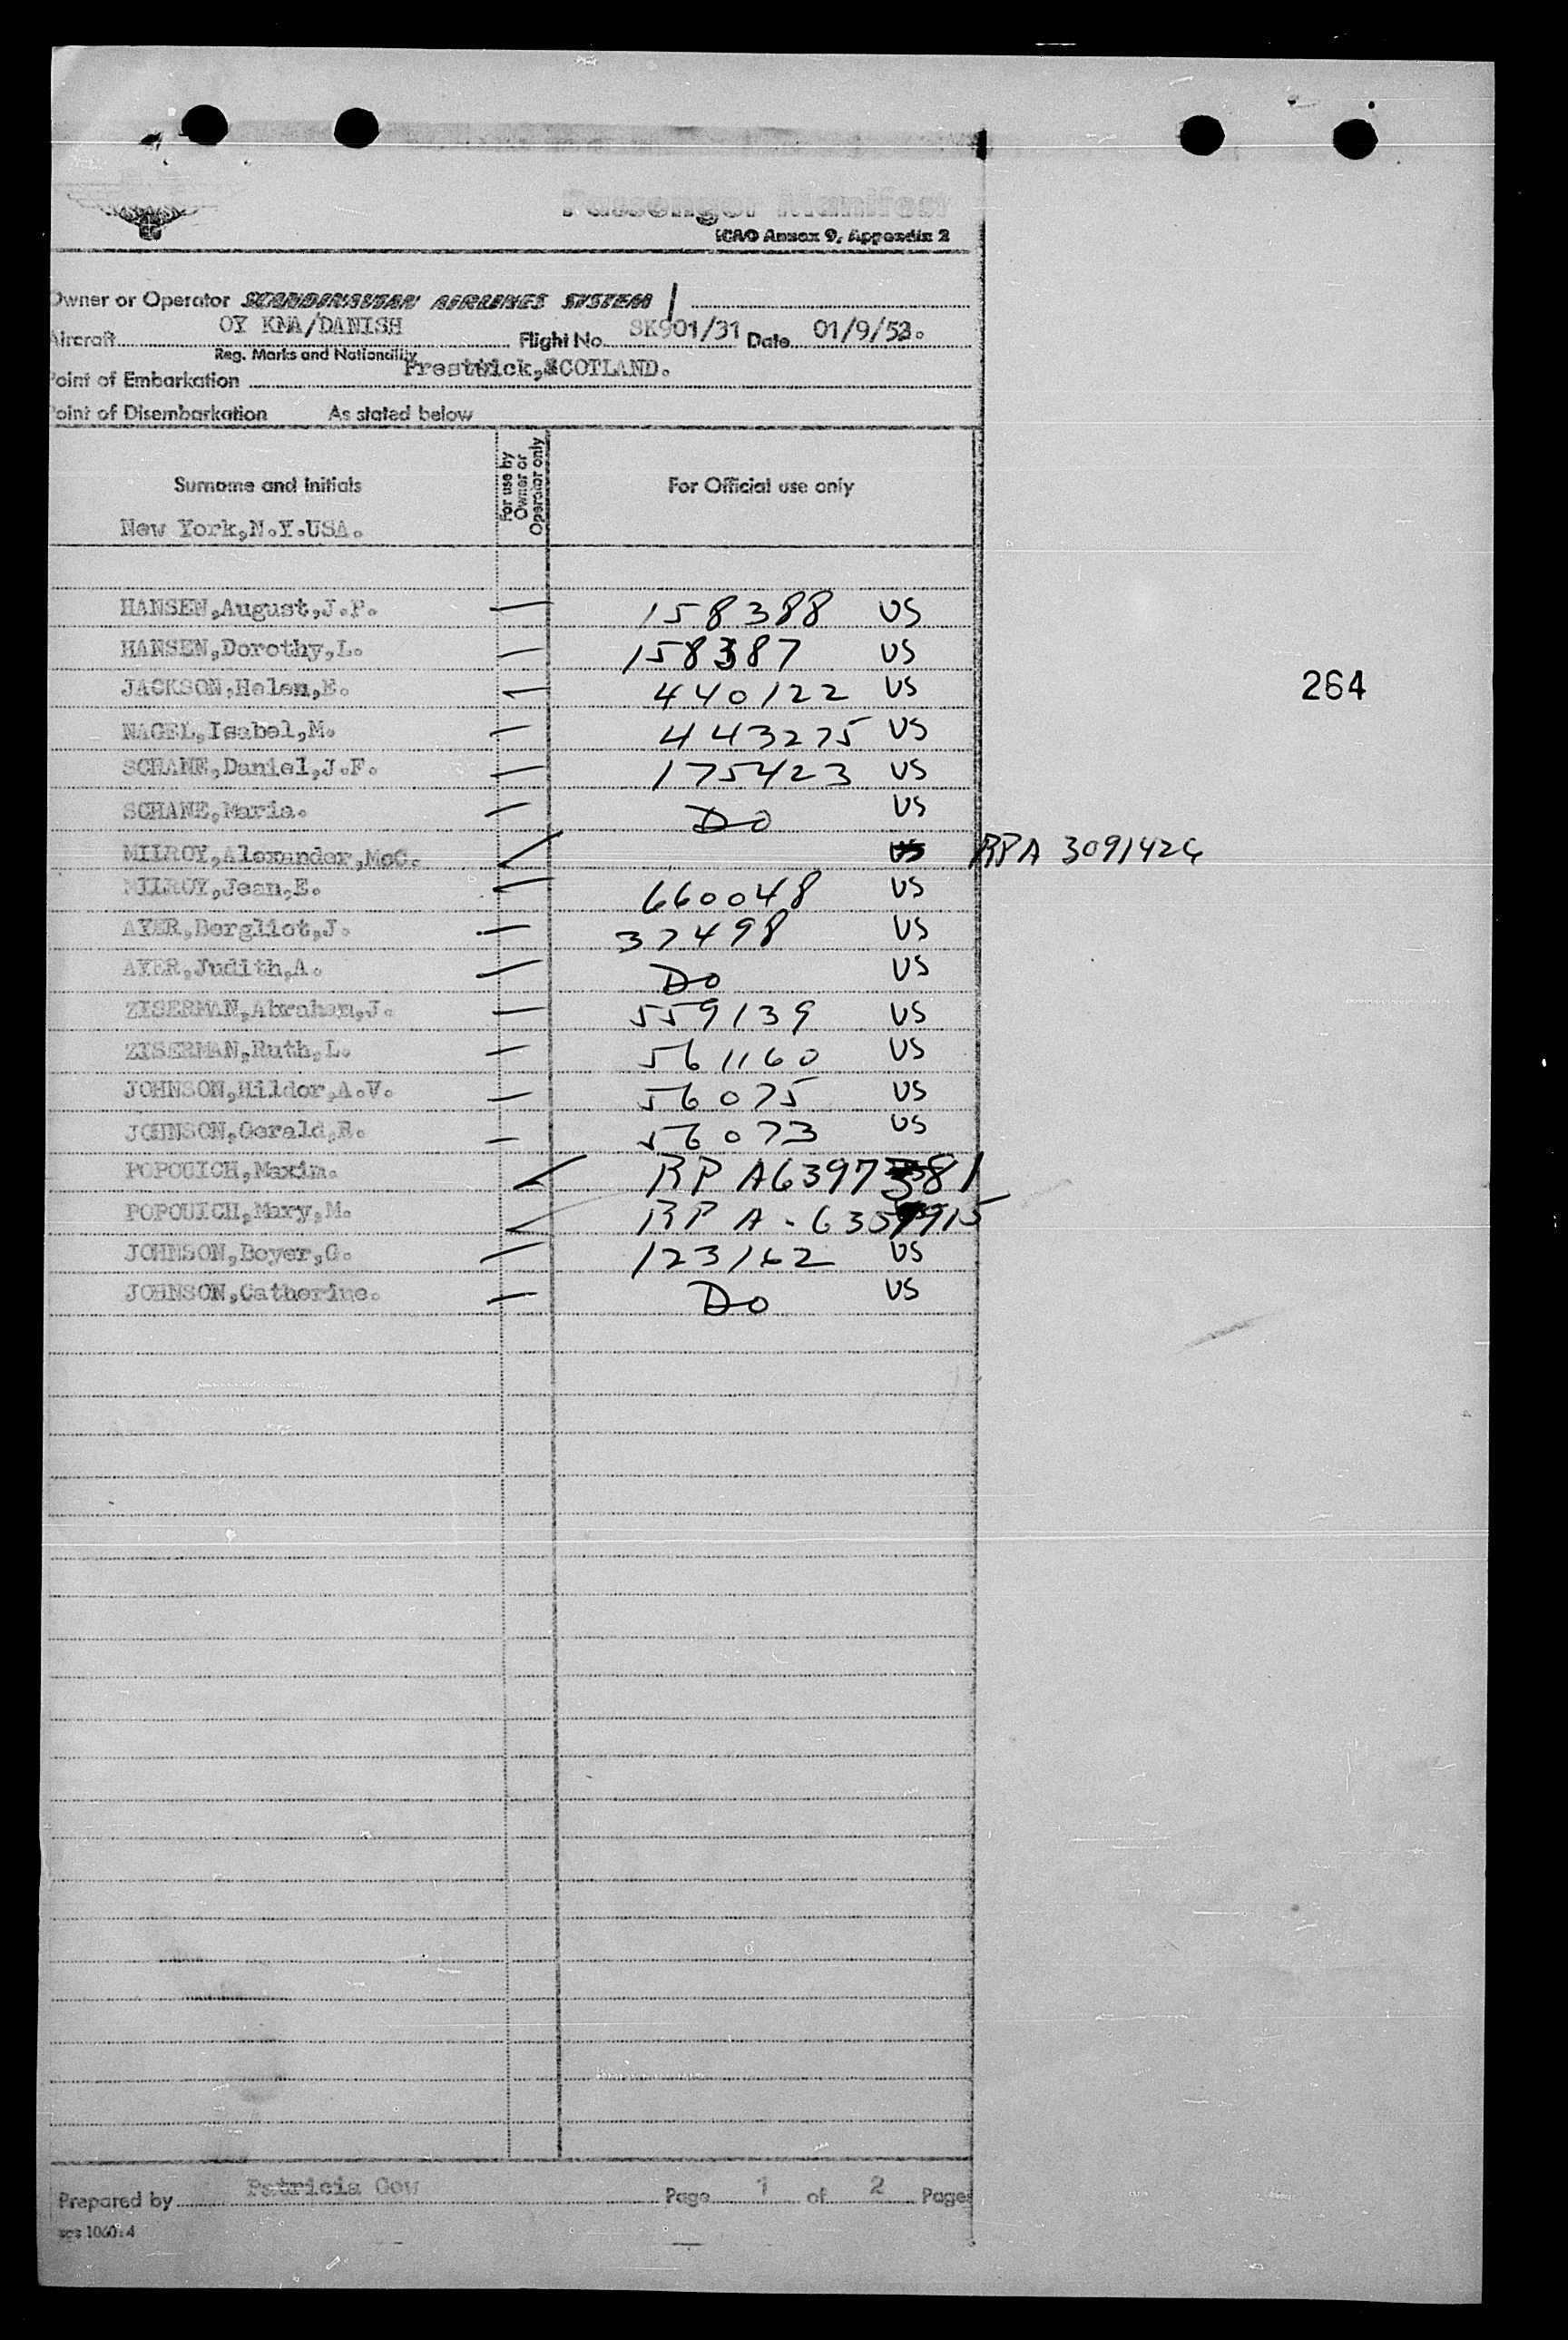 Passenger Manifest
ICAO Annex 9, Appendix 2
Owner or Operator SCANDINAVIAN AIRLINES SYSTEM
Aircraft OY KMA/DANISH Flight No. SK901/31 Date 01/9/53.
Reg. Marks and Nationality
Point of Embarkation Prestwick,SCOTLAND.
Point of Disembarkation As stated below
Surname and Initials For use by Owner or Operator only For Official use only
New York,N.Y.USA.
HANSEN,August,J.P. — 158388 US
HANSEN,Dorothy,L. — 158387 US
JACKSON,Helen,E. — 440122 US
264
NAGEL,Isabel,M. — 443275 US
SCHANE,Daniel,J.F. — 175423 US
SCHANE,Maria. — Do US
MILROY,Alexander,McC. ✓ US RPA 3091424
MILROY,Jean,E. — 660048 US
AYER,Bergliot,J. — 37498 US
AYER,Judith,A. — Do US
ZISERMAN,Abraham,J. — 559139 US
ZISERMAN,Ruth,L. — 561160 US
JOHNSON,Hildor,A.V. — 56075 US
JOHNSON,Gerald,R. — 56073 US
POPOUICH,Maxim. ✓ RP A6397381
POPOUICH,Mary,M. ✓ RP A-
JOHNSON,Boyer,G. — 123162 US
JOHNSON,Catherine. — Do US
Prepared by Patricia Gow Page 1 of 2 Pages